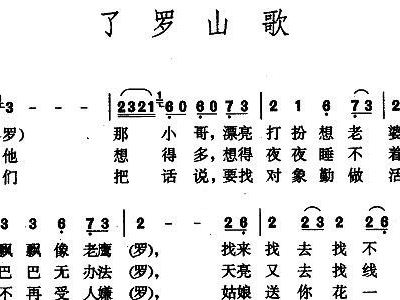 了罗山歌
3 - - - | 2321 60 60 73 | 2 1 6 73 | 2
罗) 那 小 哥,漂亮 打 扮 想 老 婆
他 想 得 多,想得 夜 夜 睡 不 着
们 把 话 说,要找 对 象 勤 做 活
3 3 6 73 | 2 - - 26 | 2 23 2 26
飘 飘 像 老鹰 (罗), 找来 找 去 找 不
巴 巴 无 办法 (罗), 天亮 又 去 找 线
不 再 受 人嫌 (罗), 姑娘 送 你 花 一